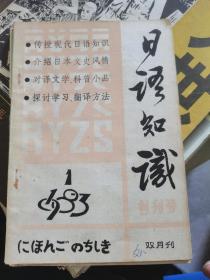 •传授现代日语知识
•介绍日本文史风情
•对译文学、科普小品
•探讨学习、翻译方法
RYZS
日语知識
创刊号
1
1983
にほんごのちしき
双月刊